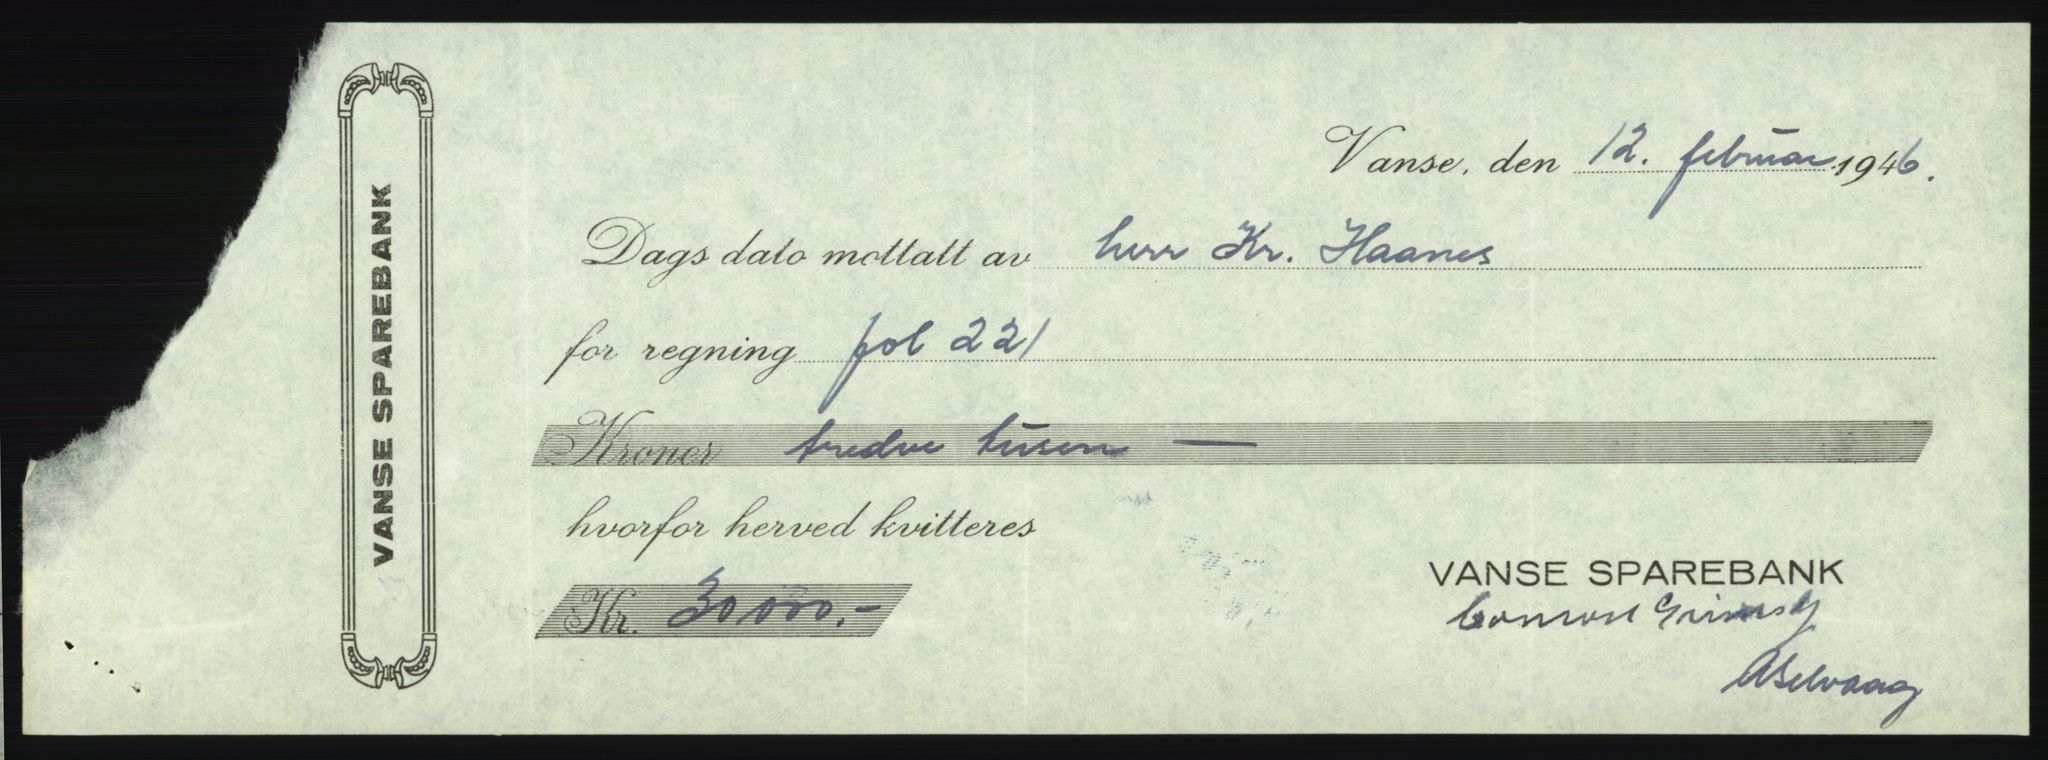 VANSE SPAREBANK
Vanse, den 12. februar 1946.
Dags dato mottatt av herr Kr. Haanes
for regning fol 221
Kroner tredve tusen —
hvorfor herved kvitteres
Kr. 30000.-
VANSE SPAREBANK